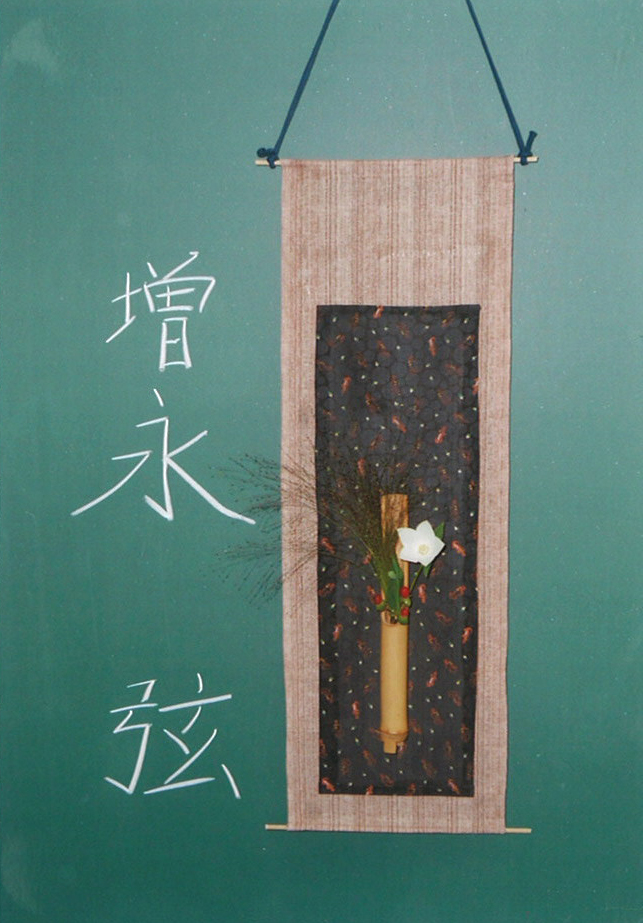 増永 弦